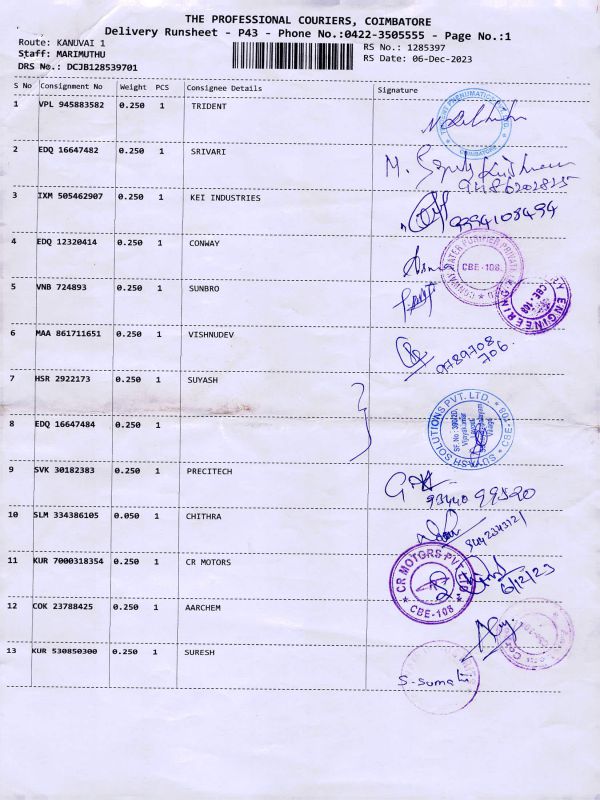 THE PROFESSIONAL COURIERS, COIMBATORE
Delivery Runsheet - P43 - Phone No.:0422-3505555 - Page No.:1
Route: KANUVAI 1
Staff: MARIMUTHU
DRS No.: DCJB128539701
RS No.: 1285397
RS Date: 06-Dec-2023
S No Consignment No Weight PCS Consignee Details Signature
1 VPL 945883582 0.250 1 TRIDENT
COIMBATORE
2 EDQ 16647482 0.250 1 SRIVARI
M.
3 IXM 505462907 0.250 1 KEI INDUSTRIES
9994103494
4 EDQ 12320414 0.250 1 CONWAY
CONWAY WATER PURIFIER PRIVATE
CBE-108
5 VNB 724893 0.250 1 SUNBRO
ENGINEERING
CBE-108
6 MAA 861711651 0.250 1 VISHNUDEV
9789708
706.
7 HSR 2922173 0.250 1 SUYASH
SUYASH SOLUTIONS PVT. LTD.
8 EDQ 16647484 0.250 1
9 SVK 30182383 0.250 1 PRECITECH
9344099520
10 SLM 334386105 0.050 1 CHITHRA
11 KUR 7000318354 0.250 1 CR MOTORS
CR MOTORS PVT LTD
CBE-108
6/12/23
12 COK 23788425 0.250 1 AARCHEM
13 KUR 530850300 0.250 1 SURESH
S-Sumathi